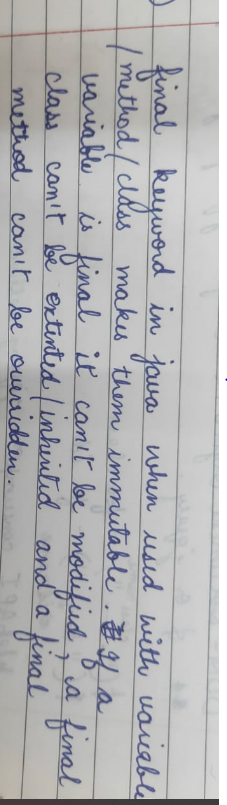 final keyword in java when used with variable
/method/class makes them immutable. If a
variable is final it can't be modified, a final
class can't be extented/inherited and a final
method can't be overridden.